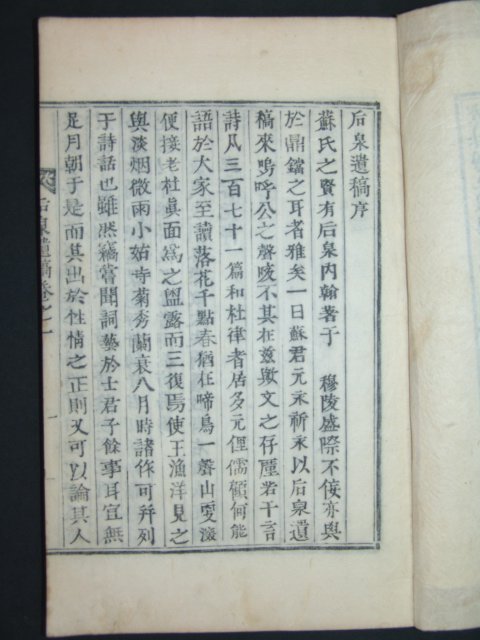 后泉遺稿序
蘇氏之賢有后泉內翰著于　穆陵盛際不侫亦與
於鼎鐺之耳者雅矣一日蘇君元永祈永以后泉遺
稿來嗚呼公之聲唆不其在玆歟文之存厪若干言
詩凡三百七十一篇和杜律者居多元俚儒顧何能
語於大家至讀落花千點春猶在啼鳥一聲山更
便接老杜眞面爲之盥露而三復焉使王漁洋見之
與淡烟微雨小姑寺菊秀蘭衰八月時諸作可幷列
于詩話也雖然竊嘗聞詞藝於士君子餘事耳宜無
足月朝于是而其出於性情之正則又可以論其人
后泉遺稿卷之一
一